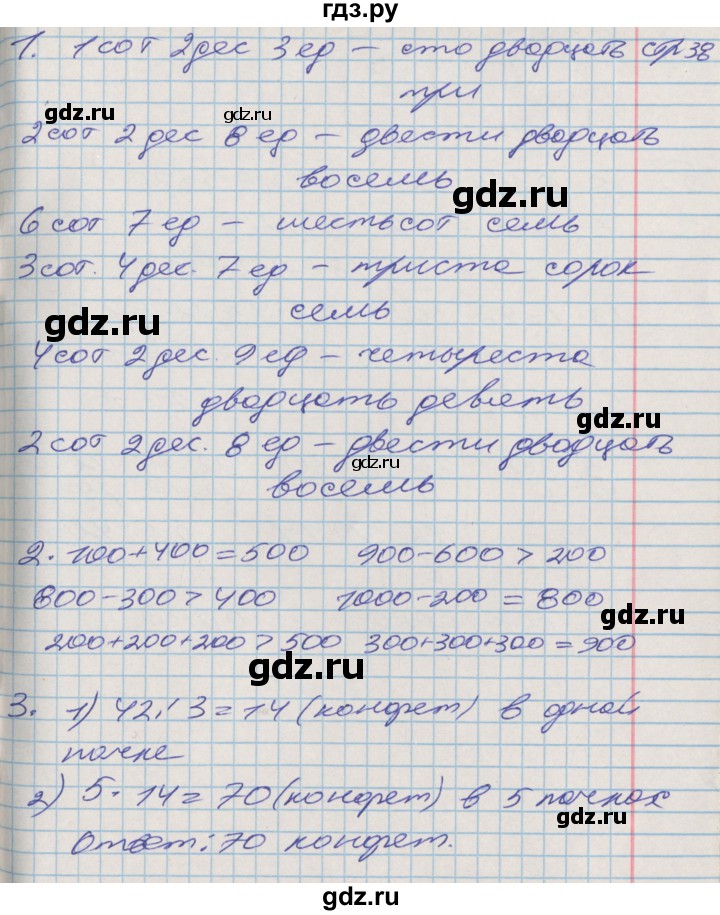 гдз.ру
1. 1 сот 2 дес 3 ед – сто двадцать стр 38
три
gdz.ru gdz.ru
2 сот 2 дес 8 ед – двести двадцать
восемь
gdz.ru
6 сот 7 ед – шестьсот семь
3 сот. 4 дес. 7 ед – триста сорок
семь
gdz.ru
4 сот 2 дес. 9 ед – четыреста
двадцать девять
gdz.ru
2 сот 2 дес. 8 ед – двести двадцать
gdz.ru
восемь
2. 100+400=500 900-600>200
800-300>400 1000-200=800
gdz.ru
200+200+200>500 300+300+300=900
gdz.ru
3. 1) 42:3=14 (конфет) в одной
пачке
2) 5·14=70 (конфет) в 5 пачках
gdz.ru
Ответ: 70 конфет.
gdz.ru
гдз.ру